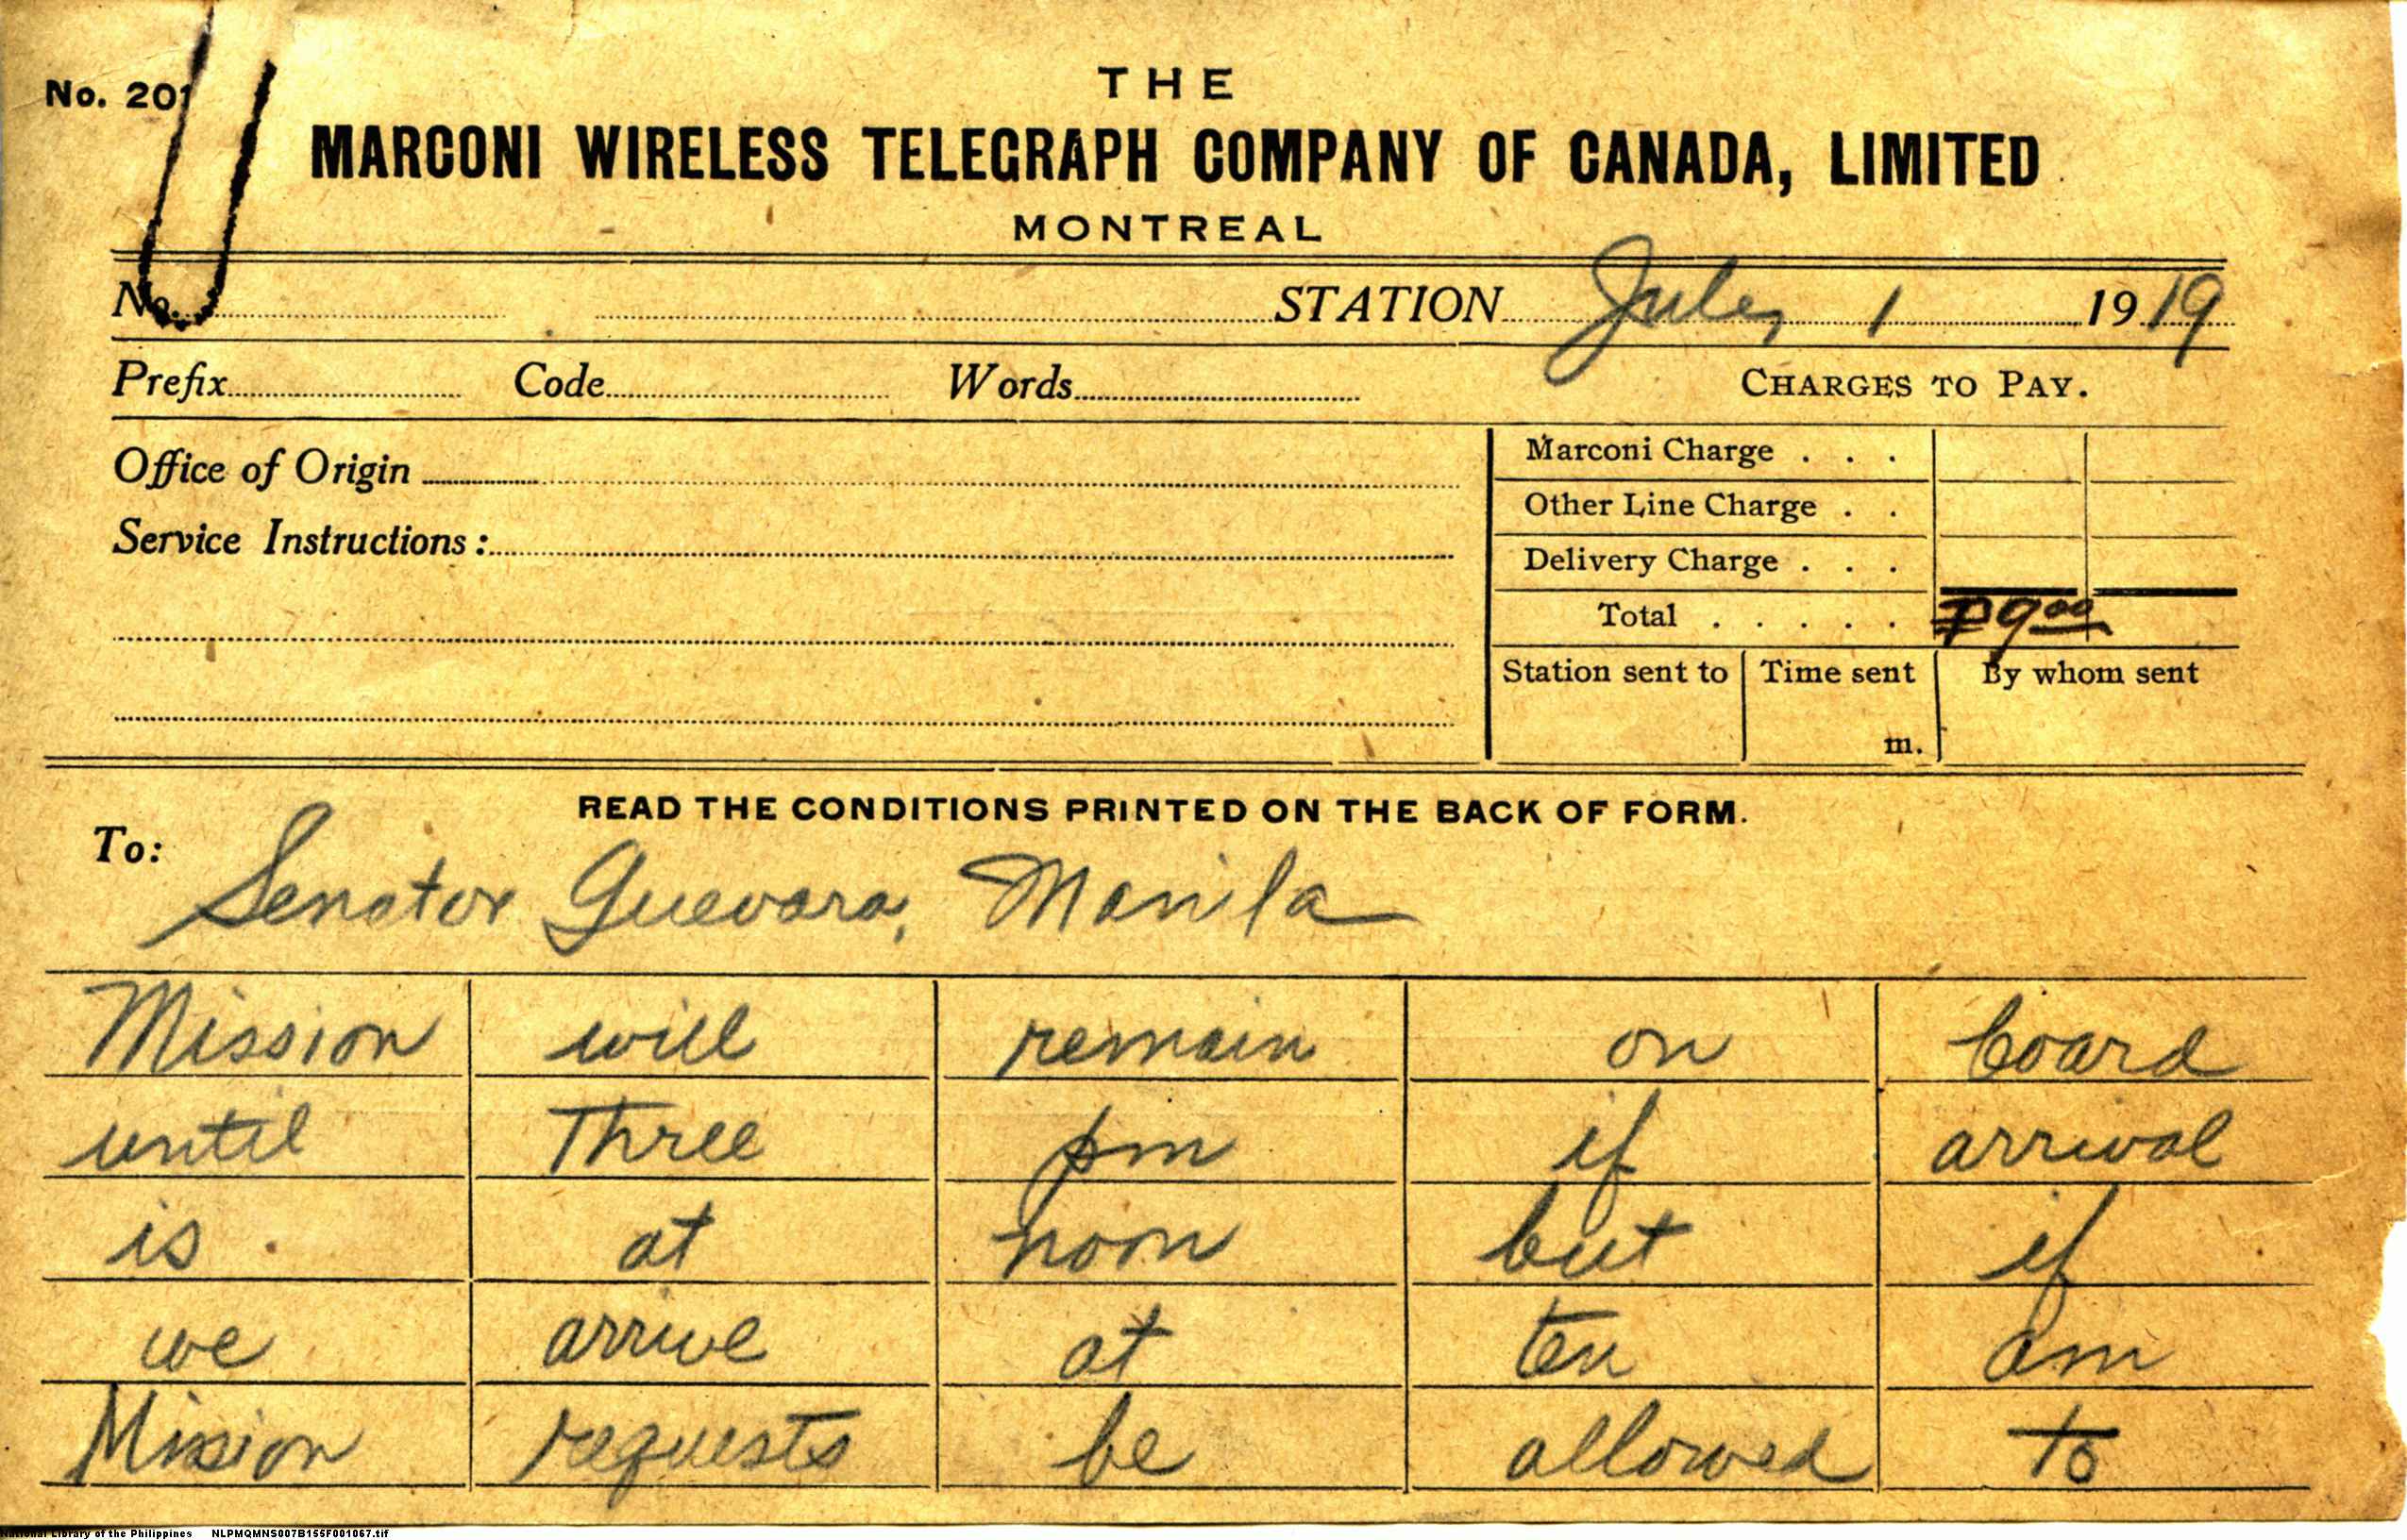 No. 201
THE
MARCONI WIRELESS TELEGRAPH COMPANY OF CANADA, LIMITED
MONTREAL
No. STATION July 1 1919
Prefix Code Words CHARGES TO PAY.
Office of Origin
Service Instructions:
Marconi Charge . . .
Other Line Charge . .
Delivery Charge . . .
Total . . . . . ₱9.00
Station sent to Time sent By whom sent
m.
READ THE CONDITIONS PRINTED ON THE BACK OF FORM.
To:
Senator Guevara, Manila
Mission will remain on board
until Three pm if arrival
is at noon but if
we arrive at ten am
Mission requests be allowed to
National Library of the Philippines NLPMQMNS007B155F001067.tif